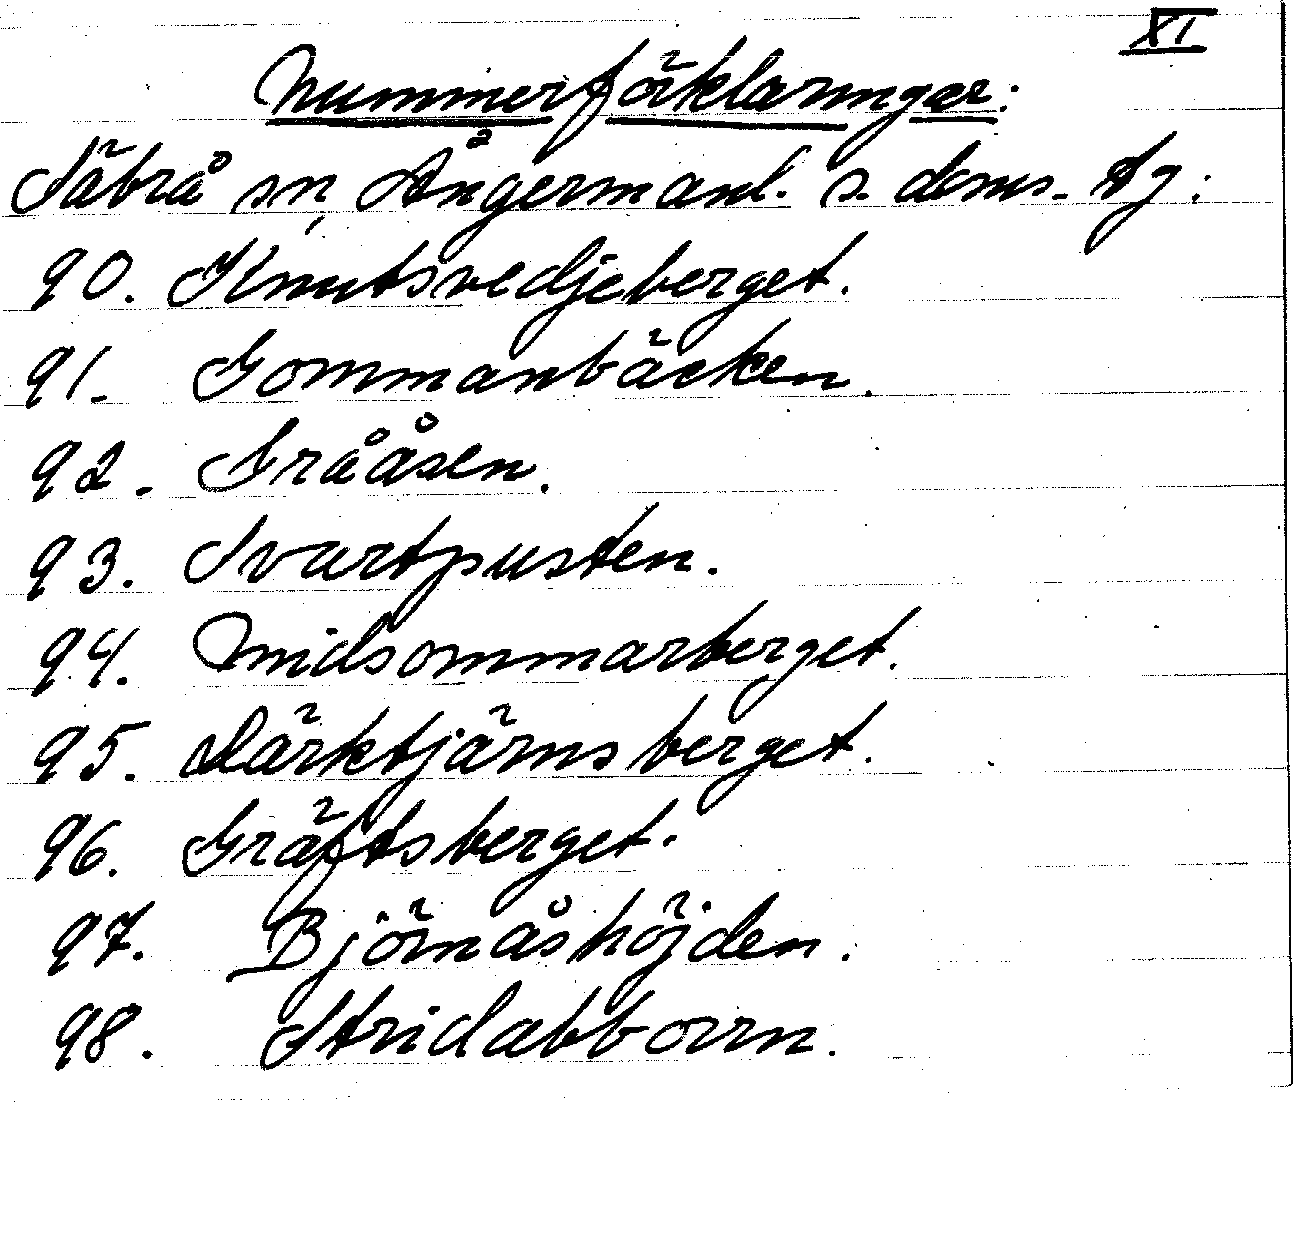 XI
Nummerförklaringar:
Säbrå sn, Ångermanl. s. doms. tg:
90. Knutsvedjeberget.
91. Gommanbäcken.
92. Grååsen.
93. Svartpusten.
94. Midsommarberget.
95. Lärktjärnsberget.
96. Gräftsberget.
97. Björnåshöjden.
98. Stridabborrn.